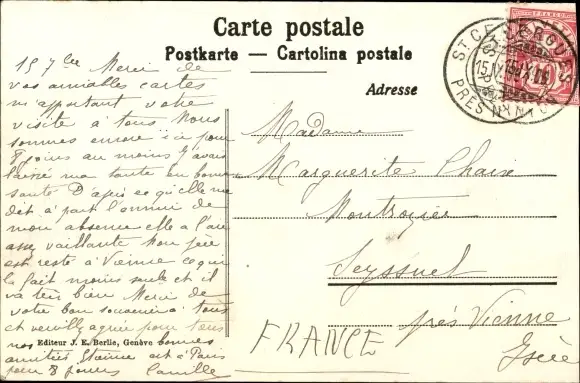 Carte postale
Postkarte — Cartolina postale
Adresse
ST CERGUES
15.IX.
PRÈS NYON
15 7bre Merci de
vos aimables cartes
m'apportant votre
visite à tous Nous
sommes encore ici pour
8 jours au moins J'avais
laissé ma tante en bonne
santé D'après ce qu'elle me
dit à part l'ennui de
mon absence elle a l'air
assez vaillante Mon père
est resté à Vienne ce qui
la fait moins seule et il
va très bien Merci de
votre bon souvenir à tous
et veuillez agréer pour tous
nos bonnes
amitiés est à Paris
pour 8 jours Camille
Editeur J. E. Berlie, Genève
Madame
Marguerite Chaix
Montrozier
Seyssuel
près Vienne
Isère
FRANCE